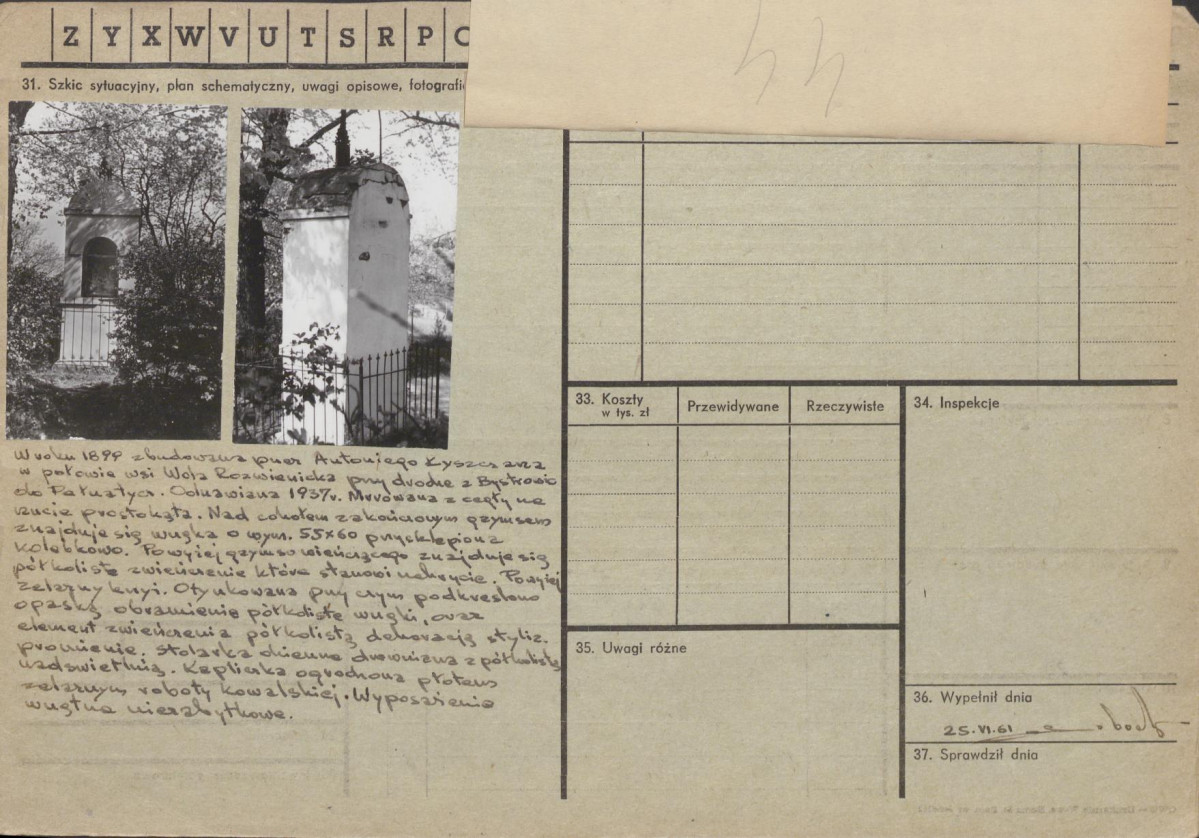 Z Y X W V U T S R P
31. Szkic sytuacyjny, plan schematyczny, uwagi opisowe, fotografie
44
W roku 1899 zbudowana przez Antoniego
w połowie wsi Wola Rozwienicka przy drodze z Bystrowic
do Pełnatycz. Odnawiana 1937r. Murowana z cegły na
rzucie prostokąta. Nad cokołem zakończonym gzymsem
znajduje się wnęka o wym. 55x60 przysklepiona
kolebkowo. Powyżej gzymsu wieńczącego znajduje się
półkoliste zwieńczenie które stanowi nakrycie. Powyżej
żelazny krzyż. Otynkowana przy czym podkreślono
opaską obramienie półkoliste wnęki, oraz
element zwieńczenia półkolistą dekoracją styliz.
promienie. Stolarka okienna drewniana z półkolistą
nadświetlnią. Kapliczka ogrodzona płotem
żelaznym roboty kowalskiej. Wyposażenie
wnętrza niezabytkowe.
33. Koszty
w tys. zł
Przewidywane
Rzeczywiste
34. Inspekcje
35. Uwagi różne
36. Wypełnił dnia
25.VI.61
37. Sprawdził dnia